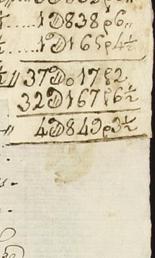 1D838p6,,
1D165p4½
37Do17p2
32D167p6½
4D849p3½